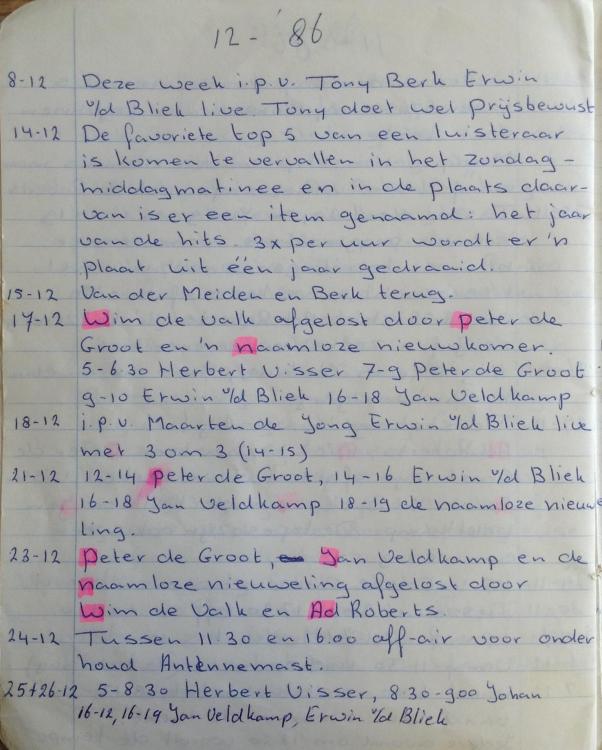 12-'86
8-12 Deze week i.p.v. Tony Berk Erwin
v/d Bliek live Tony doet wel Prijsbewust
14-12 De favoriete top 5 van een luisteraar
is komen te vervallen in het zondag-
middagmatinee en in de plaats daar-
van is er een item genaamd: het jaar
van de hits. 3x per uur wordt er 'n
plaat uit één jaar gedraaid.
15-12 Van der Meiden en Berk terug.
17-12 Wim de Valk afgelost door Peter de
Groot en 'n naamloze nieuwkomer.
5-6.30 Herbert Visser 7-9 Peter de Groot
9-10 Erwin v/d Bliek 16-18 Jan Veldkamp
18-12 i.p.v. Maarten de Jong Erwin v/d Bliek live
met 3 om 3 (14-15)
21-12 12-14 Peter de Groot, 14-16 Erwin v/d Bliek
16-18 Jan Veldkamp 18-19 de naamloze nieuwe
ling.
23-12 Peter de Groot, Jan Veldkamp en de
naamloze nieuweling afgelost door
Wim de Valk en Ad Roberts.
24-12 Tussen 11.30 en 16.00 off-air voor onder
houd Antennemast.
25+26-12 5-8.30 Herbert Visser, 8.30-9.00 Johan
16-12, 16-19 Jan Veldkamp, Erwin v/d Bliek